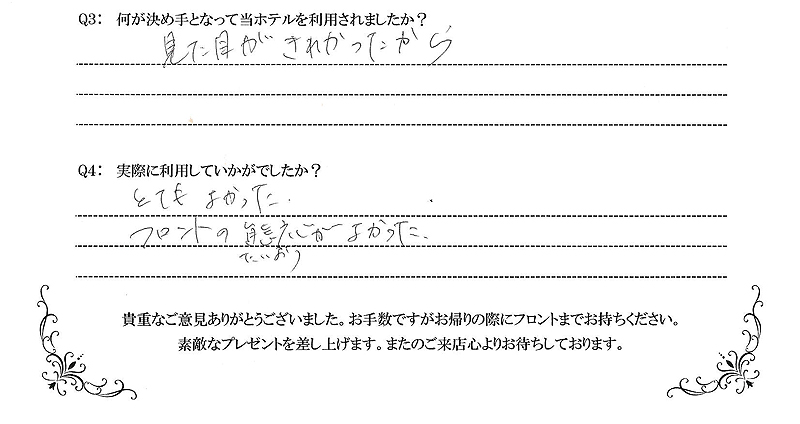 Q3: 何が決め手となって当ホテルを利用されましたか？
見た目がきれかったから
Q4: 実際に利用していかがでしたか？
とてもよかった.
フロントの態応がよかった.
たいおう
貴重なご意見ありがとうございました。お手数ですがお帰りの際にフロントまでお持ちください。
素敵なプレゼントを差し上げます。またのご来店心よりお待ちしております。